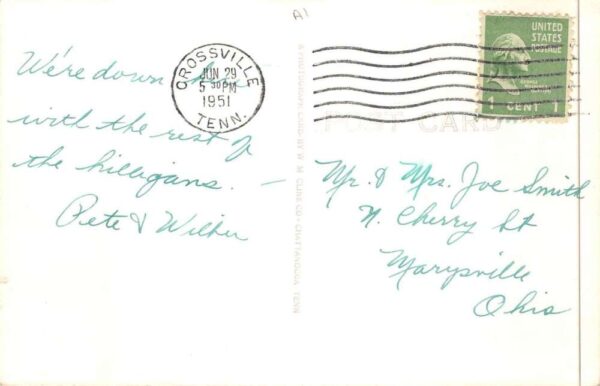 A1
CROSSVILLE
JUN 29
5 30 PM
1951
TENN.
UNITED
STATES
POSTAGE
1 CENT 1
We're down here
with the rest of
the hilligans. –
Pete & Wilber
POST CARD
Mr. & Mrs. Joe Smith
N. Cherry St
Marysville
Ohio
W. M. CLINE CO. - CHATTANOOGA, TENN